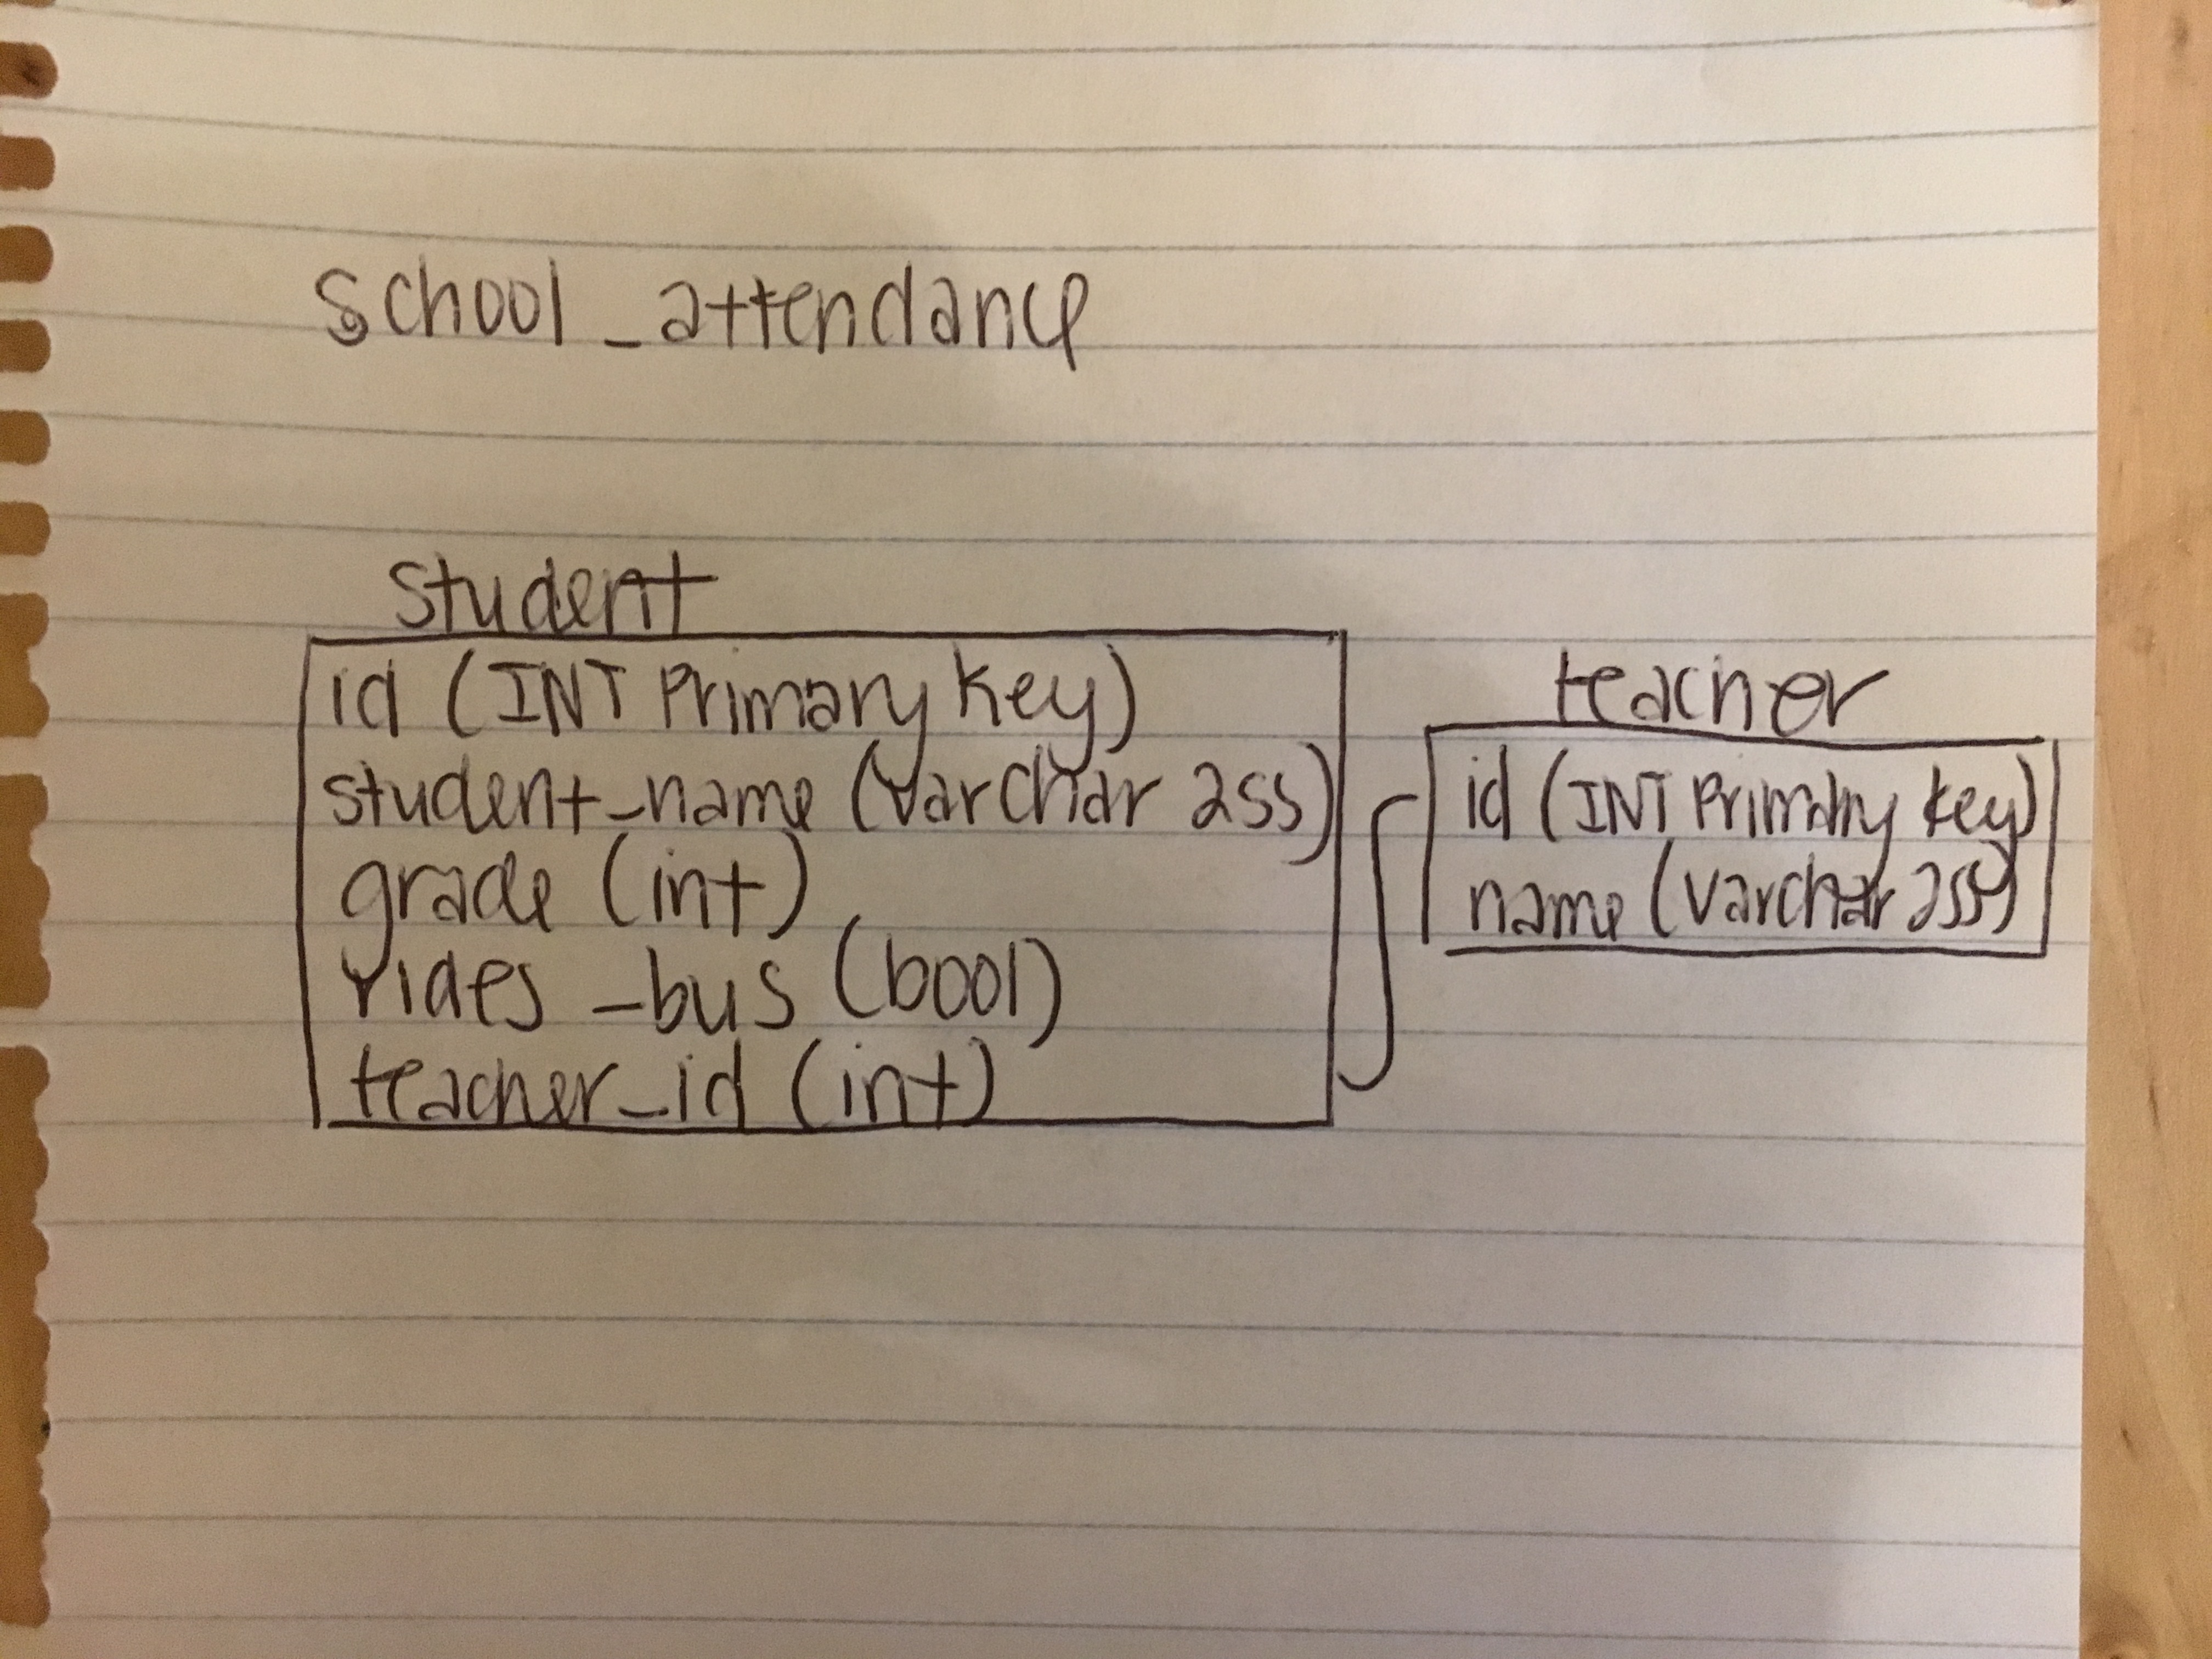 school_attendance
student
id (INT Primary key)
student_name (varchar 255)
grade (int)
rides_bus (bool)
teacher_id (int)
teacher
id (INT Primary key)
name (varchar 255)